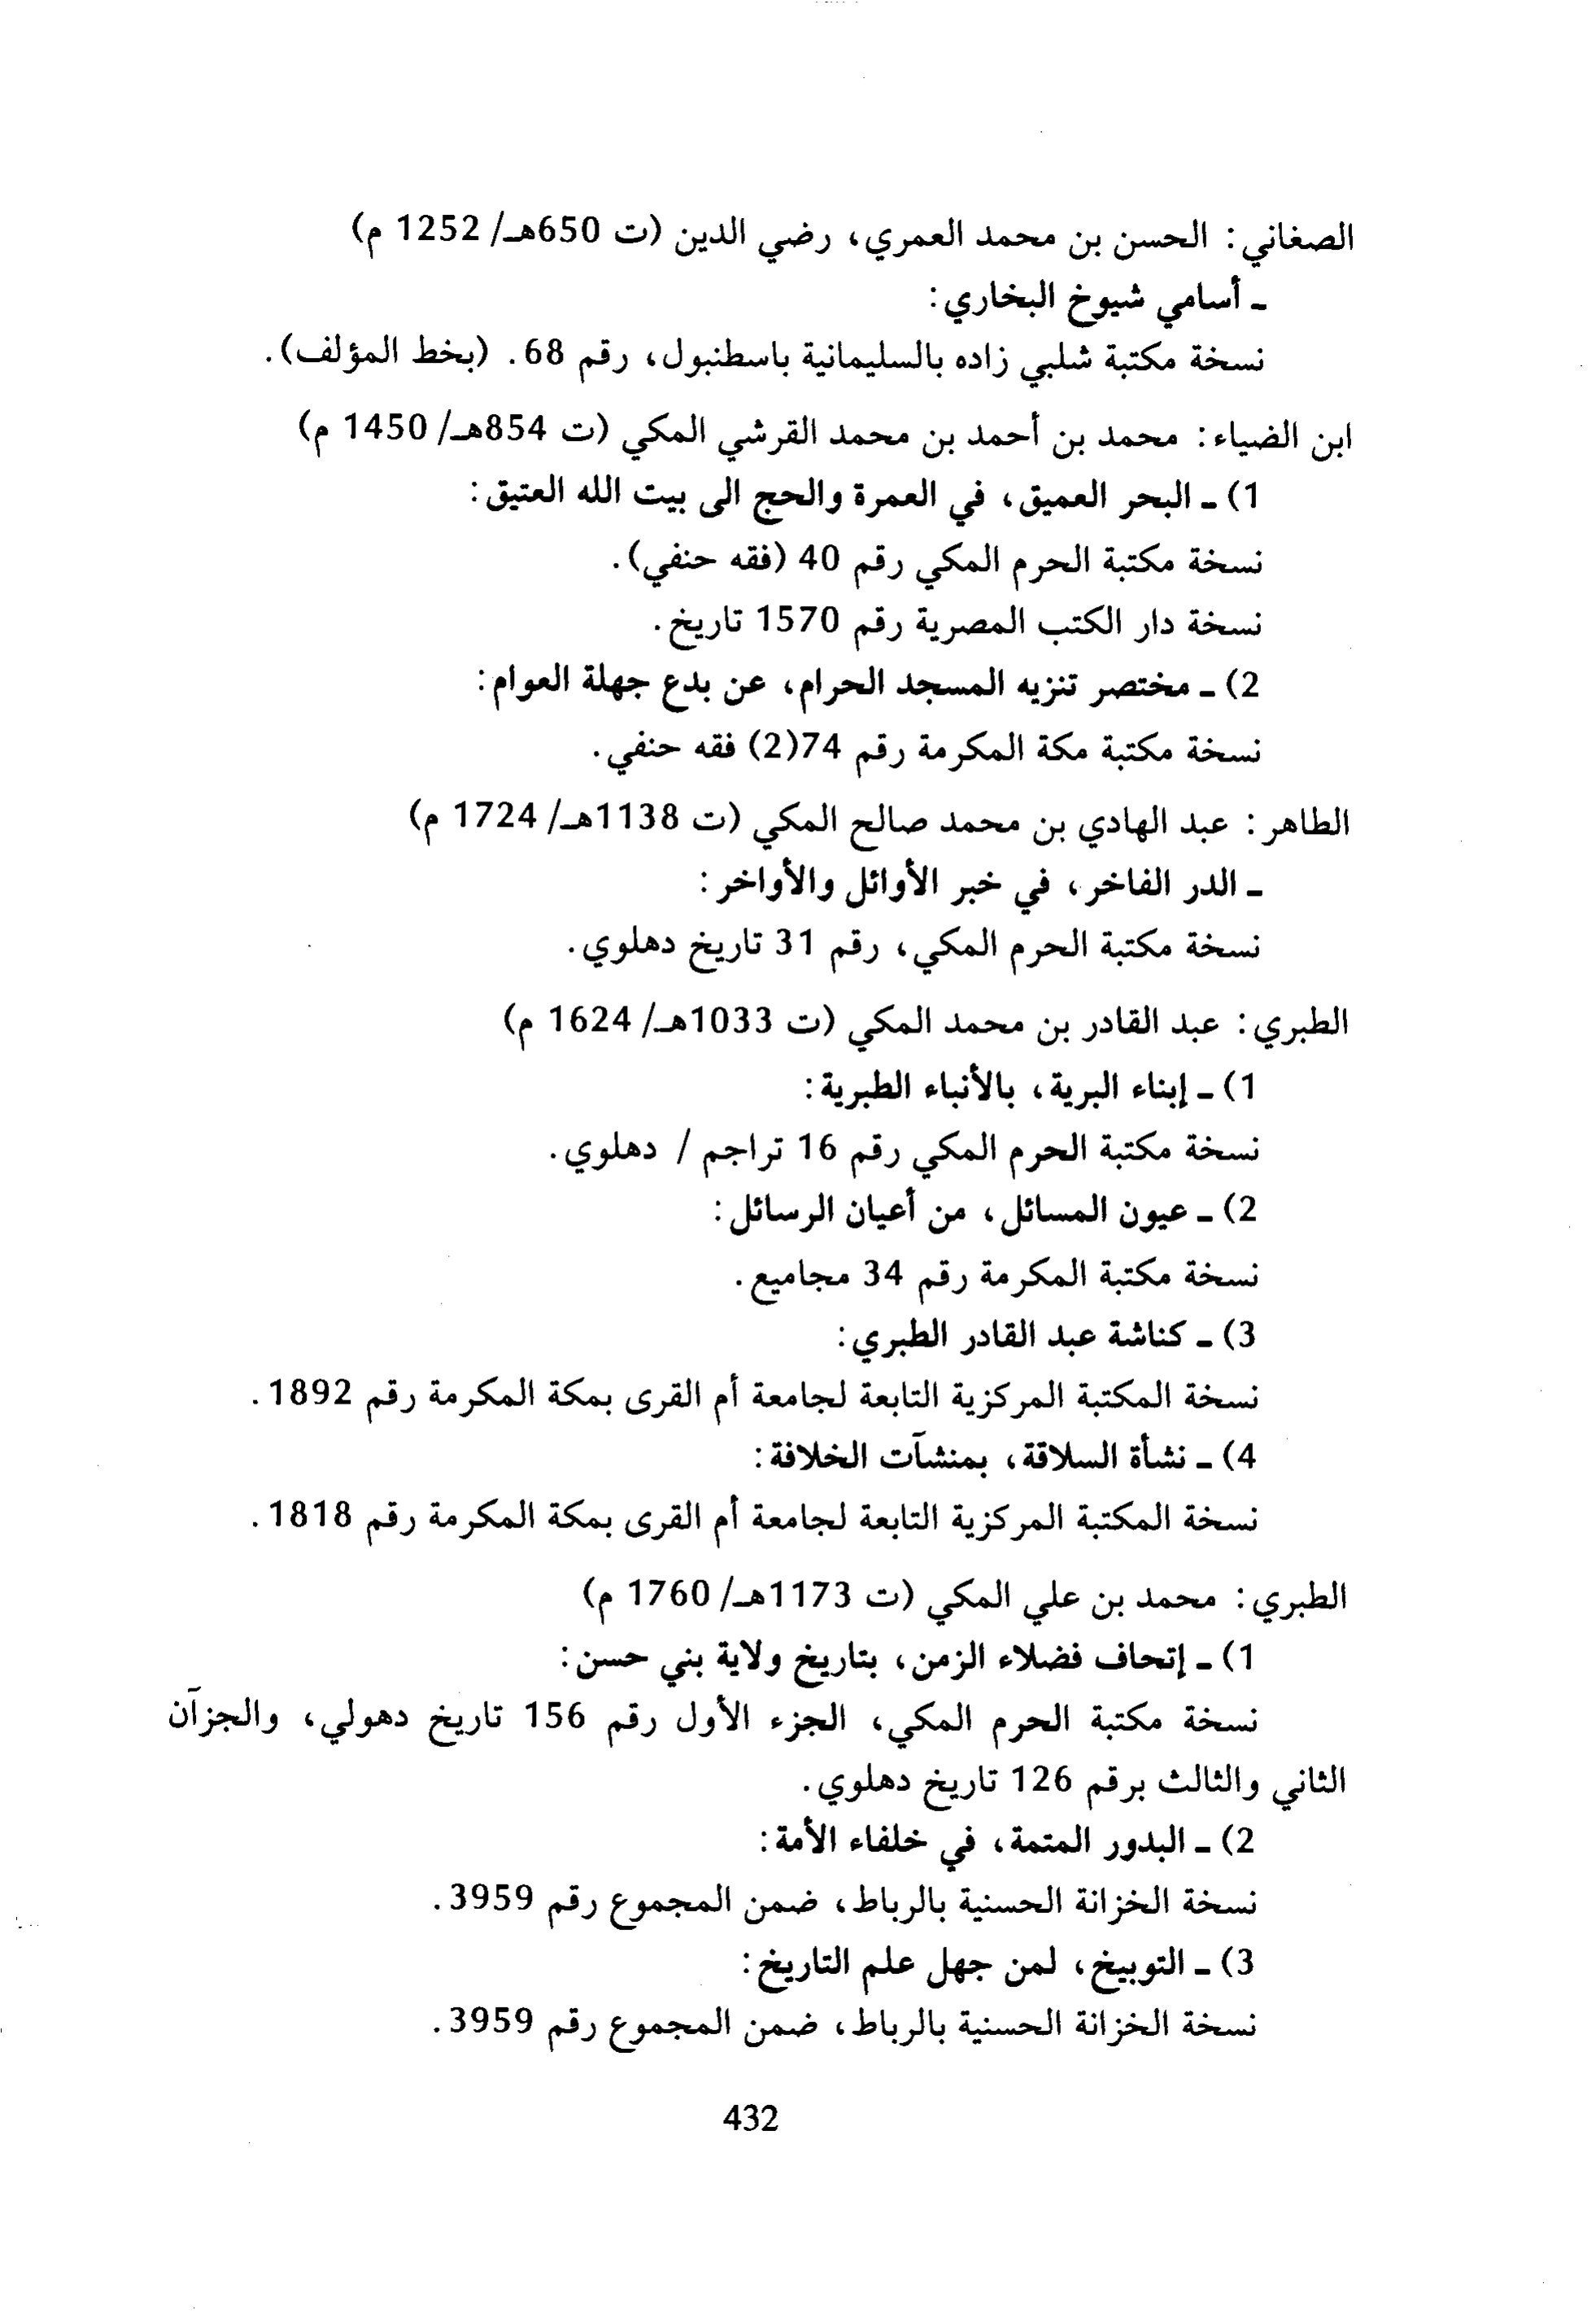 الصغاني: الحسن بن محمد العمري، رضي الدين (ت 650هـ/ 1252 م)
ـ أسامي شيوخ البخاري:
نسخة مكتبة شلبي زاده بالسليمانية باسطنبول، رقم 68. (بخط المؤلف).
ابن الضياء: محمد بن أحمد بن محمد القرشي المكي (ت 854هـ/ 1450 م)
1) ـ البحر العميق، في العمرة والحج الى بيت الله العتيق:
نسخة مكتبة الحرم المكي رقم 40 (فقه حنفي).
نسخة دار الكتب المصرية رقم 1570 تاريخ.
2) ـ مختصر تنزيه المسجد الحرام، عن بدع جهلة العوام:
نسخة مكتبة مكة المكرمة رقم 74(2) فقه حنفي.
الطاهر: عبد الهادي بن محمد صالح المكي (ت 1138هـ/ 1724 م)
ـ الدر الفاخر، في خبر الأوائل والأواخر:
نسخة مكتبة الحرم المكي، رقم 31 تاريخ دهلوي.
الطبري: عبد القادر بن محمد المكي (ت 1033هـ/ 1624 م)
1) ـ إنباء البرية، بالأنباء الطبرية:
نسخة مكتبة الحرم المكي رقم 16 تراجم / دهلوي.
2) ـ عيون المسائل، من أعيان الرسائل:
نسخة مكتبة المكرمة رقم 34 مجاميع.
3) ـ كناشة عبد القادر الطبري:
نسخة المكتبة المركزية التابعة لجامعة أم القرى بمكة المكرمة رقم 1892.
4) ـ نشأة السلاقة، بمنشآت الخلافة:
نسخة المكتبة المركزية التابعة لجامعة أم القرى بمكة المكرمة رقم 1818.
الطبري: محمد بن علي المكي (ت 1173هـ/ 1760 م)
1) ـ إتحاف فضلاء الزمن، بتاريخ ولاية بني حسن:
نسخة مكتبة الحرم المكي، الجزء الأول رقم 156 تاريخ دهولي، والجزآن
الثاني والثالث برقم 126 تاريخ دهلوي.
2) ـ البدور المتمة، في خلفاء الأمة:
نسخة الخزانة الحسنية بالرباط، ضمن المجموع رقم 3959.
3) ـ التوبيخ، لمن جهل علم التاريخ:
نسخة الخزانة الحسنية بالرباط، ضمن المجموع رقم 3959.
432